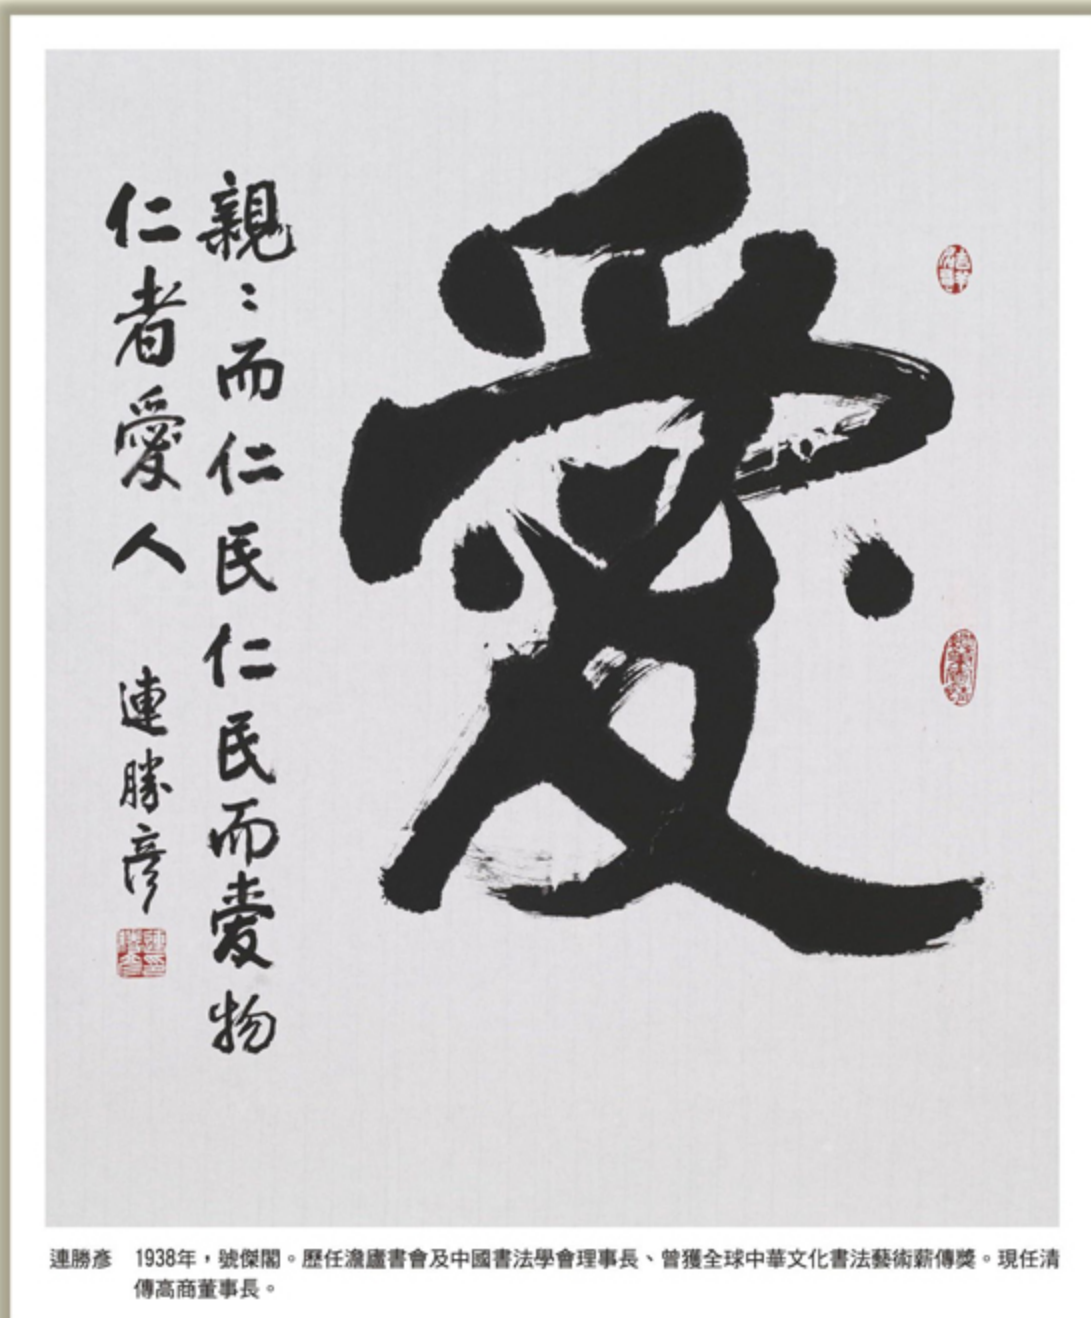 愛
親〻而仁民仁民而愛物
仁者愛人 連勝彥
連勝彥 1938年，號傑閣。歷任澹廬書會及中國書法學會理事長、曾獲全球中華文化書法藝術薪傳獎。現任清
傳高商董事長。